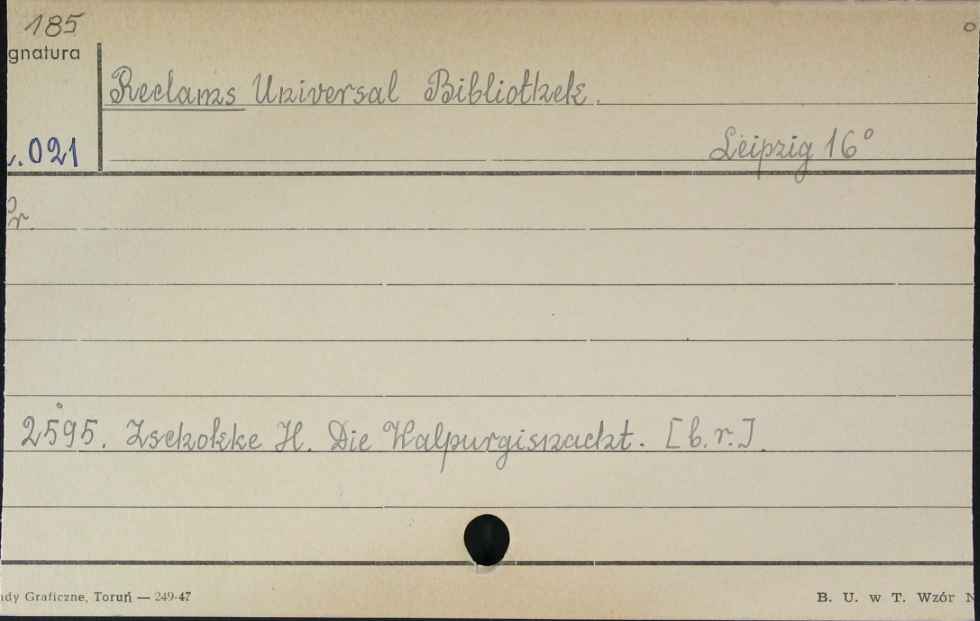 185
gnatura
Reclams Universal Bibliothek.
Leipzig 16°
.021
r.
2595. Zschokke H. Die Walpurgisnacht. [b.r.].
ady Graficzne, Toruń — 249-47
B. U. w T. Wzór N